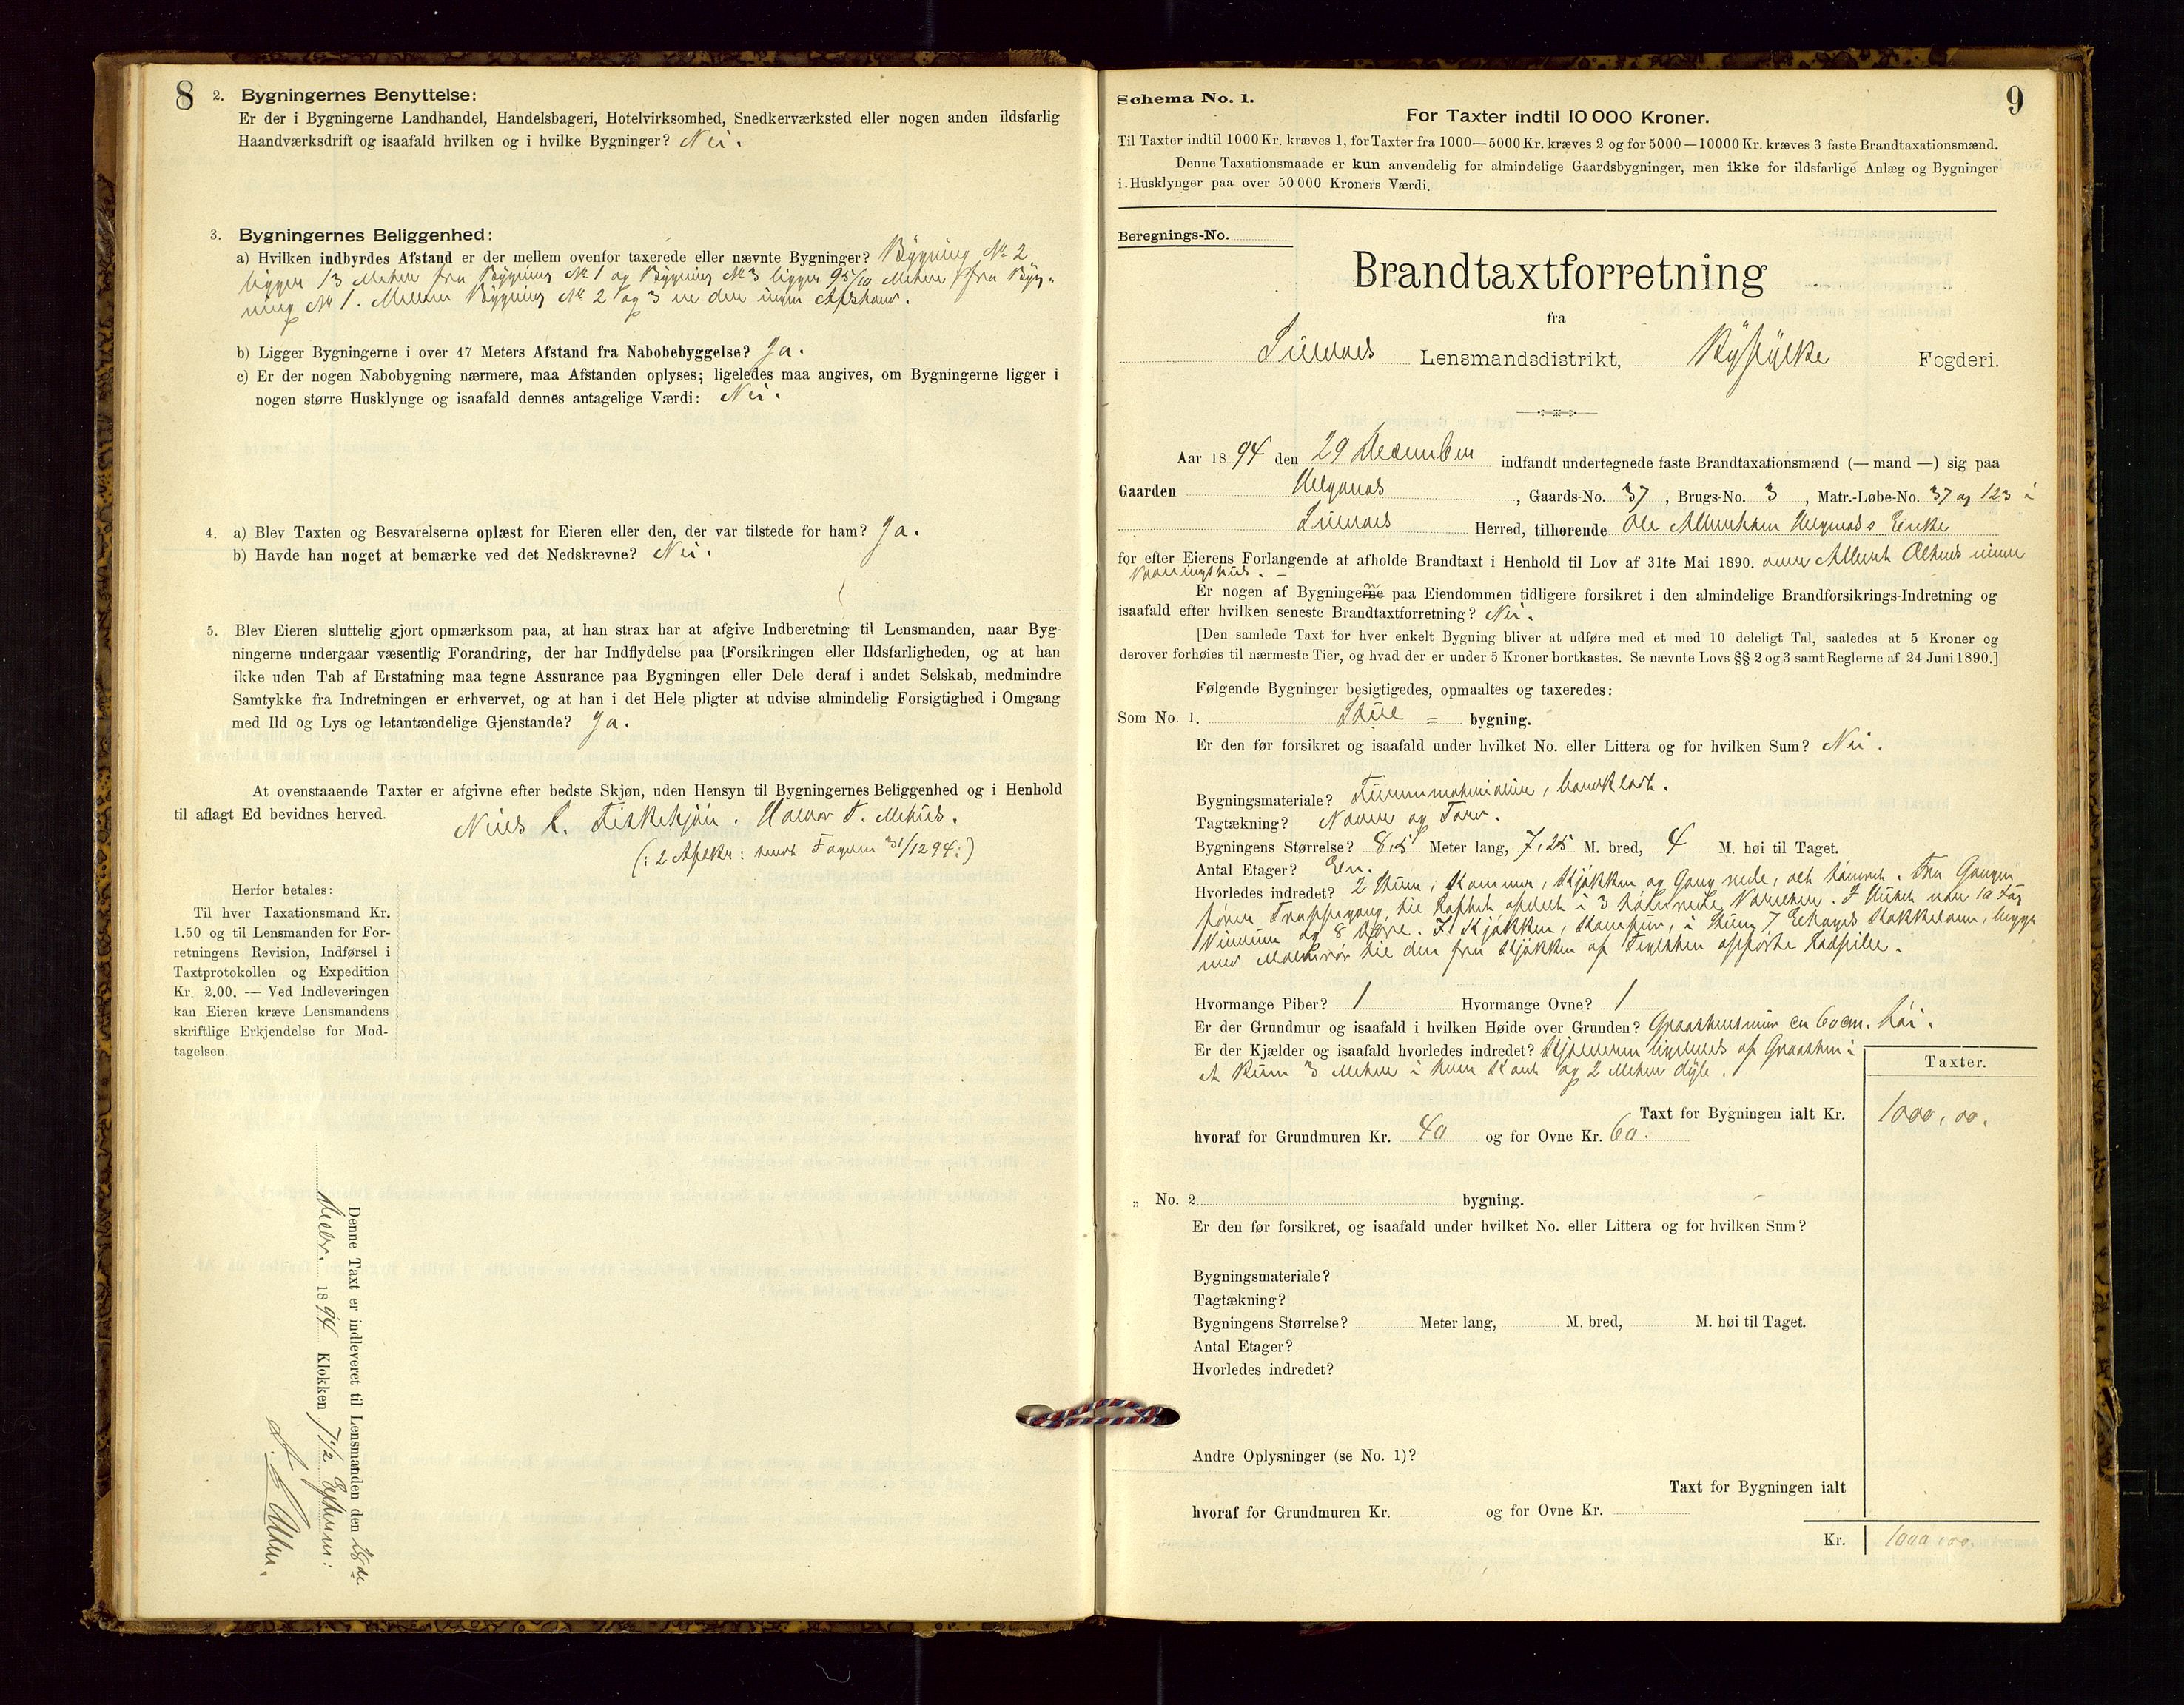 8
2. Bygningernes Benyttelse:
Er der i Bygningerne Landhandel, Handelsbageri, Hotelvirksomhed, Snedkerværksted eller nogen anden ildsfarlig
Haandværksdrift og isaafald hvilken og i hvilke Bygninger? Nei.
3. Bygningernes Beliggenhed:
a) Hvilken indbyrdes Afstand er der mellem ovenfor taxerede eller nævnte Bygninger? Bygning No 2
ligger 13 Meter fra Bygning No 1 og Bygning No 3 ligger 9 5/10 Meter fra Byg-
ning No 1. Mellem Bygning No 2 og 3 er der ingen Afstand.
b) Ligger Bygningerne i over 47 Meters Afstand fra Nabobebyggelse? Ja.
c) Er der nogen Nabobygning nærmere, maa Afstanden oplyses; ligeledes maa angives, om Bygningerne ligger i
nogen større Husklynge og isaafald dennes antagelige Værdi: Nei.
4. a) Blev Taxten og Besvarelserne oplæst for Eieren eller den, der var tilstede for ham? Ja.
b) Havde han noget at bemærke ved det Nedskrevne? Nei.
5. Blev Eieren sluttelig gjort opmærksom paa, at han strax har at afgive Indberetning til Lensmanden, naar Byg-
ningerne undergaar væsentlig Forandring, der har Indflydelse paa Forsikringen eller Ildsfarligheden, og at han
ikke uden Tab af Erstatning maa tegne Assurance paa Bygningen eller Dele deraf i andet Selskab, medmindre
Samtykke fra Indretningen er erhvervet, og at han i det Hele pligter at udvise almindelig Forsigtighed i Omgang
med Ild og Lys og letantændelige Gjenstande? Ja.
At ovenstaaende Taxter er afgivne efter bedste Skjøn, uden Hensyn til Bygningernes Beliggenhed og i Henhold
til aflagt Ed bevidnes herved. Niels L. Fisketjön. Halvor T. Mehus.
(: 2 Afskr: sendt Fogden 31/12 94:)
Herfor betales:
Til hver Taxationsmand Kr.
1.50 og til Lensmanden for For-
retningens Revision, Indførsel i
Taxtprotokollen og Expedition
Kr. 2.00. — Ved Indleveringen
kan Eieren kræve Lensmandens
skriftlige Erkjendelse for Mod-
tagelsen.
Denne Taxt er indleveret til Lensmanden den 28de
Decbr. 1894 Klokken 7 1/2 Efterm:
9
Schema No. 1.
For Taxter indtil 10 000 Kroner.
Til Taxter indtil 1000 Kr. kræves 1, for Taxter fra 1000—5000 Kr. kræves 2 og for 5000—10000 Kr. kræves 3 faste Brandtaxationsmænd.
Denne Taxationsmaade er kun anvendelig for almindelige Gaardsbygninger, men ikke for ildsfarlige Anlæg og Bygninger
i Husklynger paa over 50 000 Kroners Værdi.
Beregnings-No.
Brandtaxtforretning
fra
Suldals Lensmandsdistrikt, Ryfylke Fogderi.
Aar 1894 den 29 December indfandt undertegnede faste Brandtaxationsmænd (— mand —) sig paa
Gaarden Helgenæs, Gaards-No. 37, Brugs-No. 3, Matr.-Løbe-No. 37 og 123 i
Suldals Herred, tilhørende Ole Helgenæs Enke
for efter Eierens Forlangende at afholde Brandtaxt i Henhold til Lov af 31te Mai 1890. over
Vaaningshus. —
Er nogen af Bygningerne paa Eiendommen tidligere forsikret i den almindelige Brandforsikrings-Indretning og
isaafald efter hvilken seneste Brandtaxtforretning? Nei.
[Den samlede Taxt for hver enkelt Bygning bliver at udføre med et med 10 deleligt Tal, saaledes at 5 Kroner og
derover forhøies til nærmeste Tier, og hvad der er under 5 Kroner bortkastes. Se nævnte Lovs §§ 2 og 3 samt Reglerne af 24 Juni 1890.]
Følgende Bygninger besigtigedes, opmaaltes og taxeredes:
Som No. 1. Stue = bygning.
Er den før forsikret og isaafald under hvilket No. eller Littera og for hvilken Sum? Nei.
Bygningsmateriale? Tømmermateriale, bordklædt.
Tagtækning? Næver og Torv.
Bygningens Størrelse? 8,5 Meter lang, 7,25 M. bred, 4 M. høi til Taget.
Antal Etager? En.
Hvorledes indredet? 2 Stuer, Kammer, Kjøkken og Gang nede, alt tømret. Fra Gangen
fører Trappegang til Loftet afdelt i 3 tømrede Værelser. I Huset er 10 Fag
Vinduer og 8 Døre. I Kjøkken Komfur, i Stuen 7 Etages Kakkelovn, begge
med Malmrør til den fra Kjøkken af Teglsten opførte Ladpibe.
Hvormange Piber? 1 Hvormange Ovne? 1
Er der Grundmur og isaafald i hvilken Høide over Grunden? Graastensmur ca 60 cm. høi.
Er der Kjælder og isaafald hvorledes indredet? Kjælderen ligeledes af Graasten i
et Rum 3 Meter i hver Kant og 2 Meter dyb.
Taxter.
Taxt for Bygningen ialt Kr. 1000,00.
hvoraf for Grundmuren Kr. 40 og for Ovne Kr. 60.
„ No. 2. bygning.
Er den før forsikret, og isaafald under hvilket No. eller Littera og for hvilken Sum?
Bygningsmateriale?
Tagtækning?
Bygningens Størrelse? Meter lang, M. bred, M. høi til Taget.
Antal Etager?
Hvorledes indredet?
Andre Oplysninger (se No. 1)?
Taxt for Bygningen ialt
hvoraf for Grundmuren Kr. og for Ovne Kr.
Kr. 1000,00.